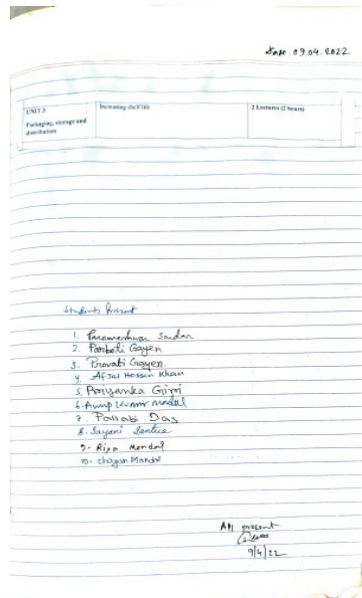 Date: 09.04.2022
UNIT 3
Packaging, storage and distribution
Increasing shelf life
2 Lectures (2 hours)
Students Present
1. Parameshwar Sardar
2. Parboti Gayen
3. Provati Gayen
4. Afjal Hossin Khan
5. Priyanka Giri
6. Anup Kumar Mondal
7. Pallabi Das
8. Sayani Santra
9. Riya Mondal
10. Chayan Mandal
All present
9/4/22